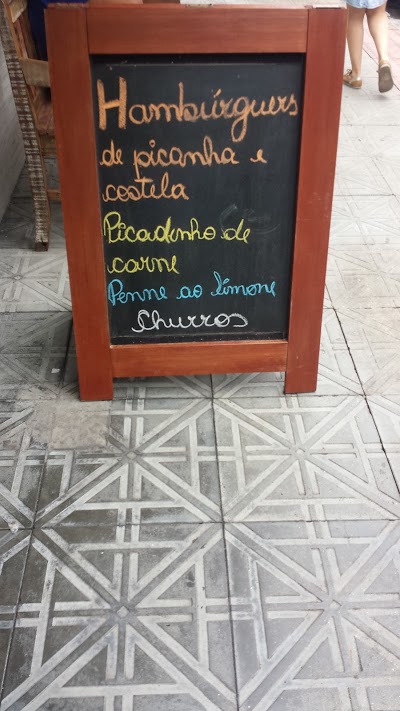 Hambúrguers
de picanha e
costela
Picadinho de
carne
Penne ao limone
Churros